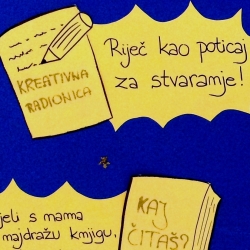 KREATIVNA
RADIONICA
Riječ kao poticaj
za stvaranje!
jeli s mama
majdražu knjigu,
KAJ
ČITAŠ?